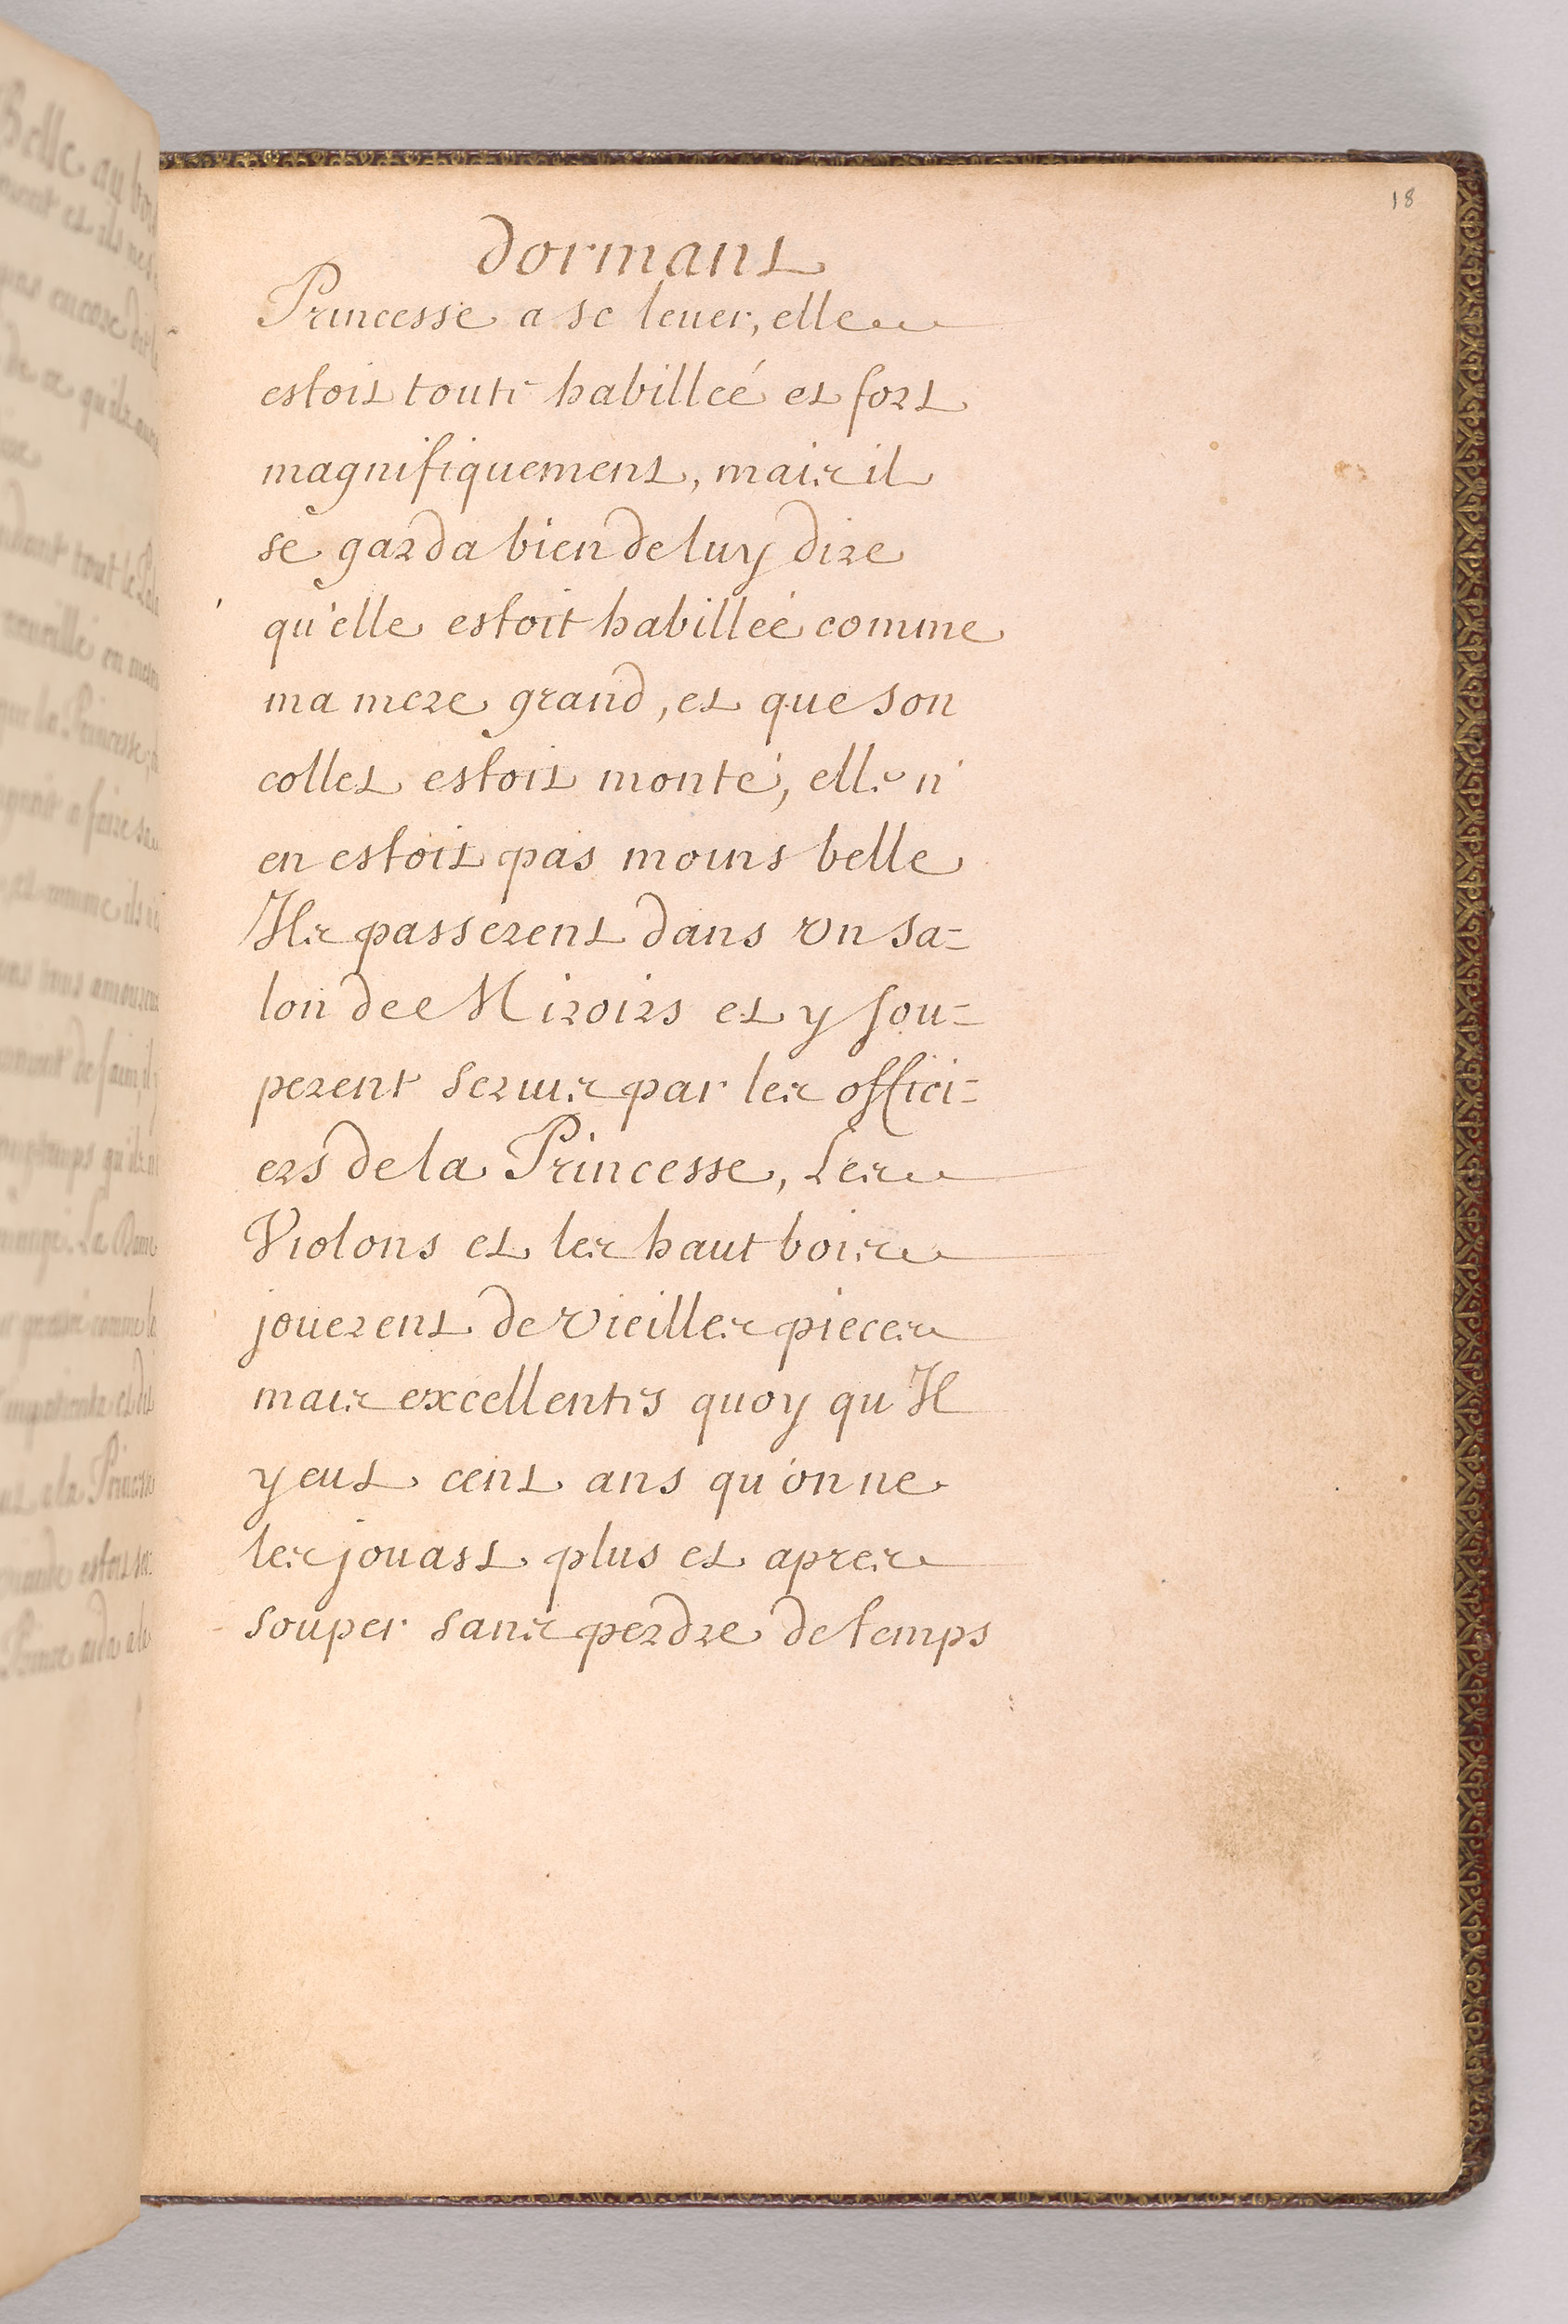 18
dormant
Princesse a se leuer, elle
estoit toute habilleé et fort
magnifiquement, mais il
se garda bien de luy dire
qu'elle estoit habilleé comme
ma mere grand, et que son
collet estoit monté, elle n'
en estoit pas moins belle
Ils passerent dans vn sa=
lon de Miroirs et y sou=
perent seruis par les offici=
ers de la Princesse, Les
Violons et les hautbois
jouerent de vieilles pieces
mais excellentes quoy qu'Il
y eut cent ans qu'on ne
les jouast plus et apres
souper sans perdre de temps